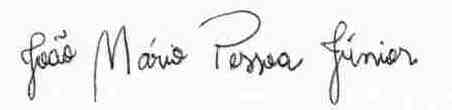 João Mário Pessoa Júnior